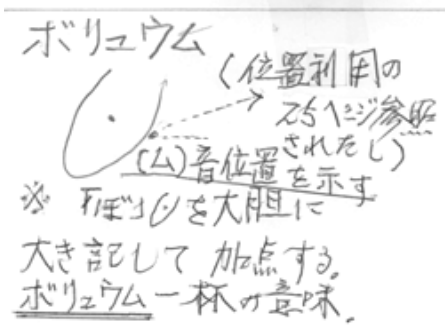 ボリュウム
(位置利用の
25ページ参照
されたし)
(ム)音位置を示す
※ 「ぼ」を大胆に
大き記して加点する。
ボリュウム一杯の意味.